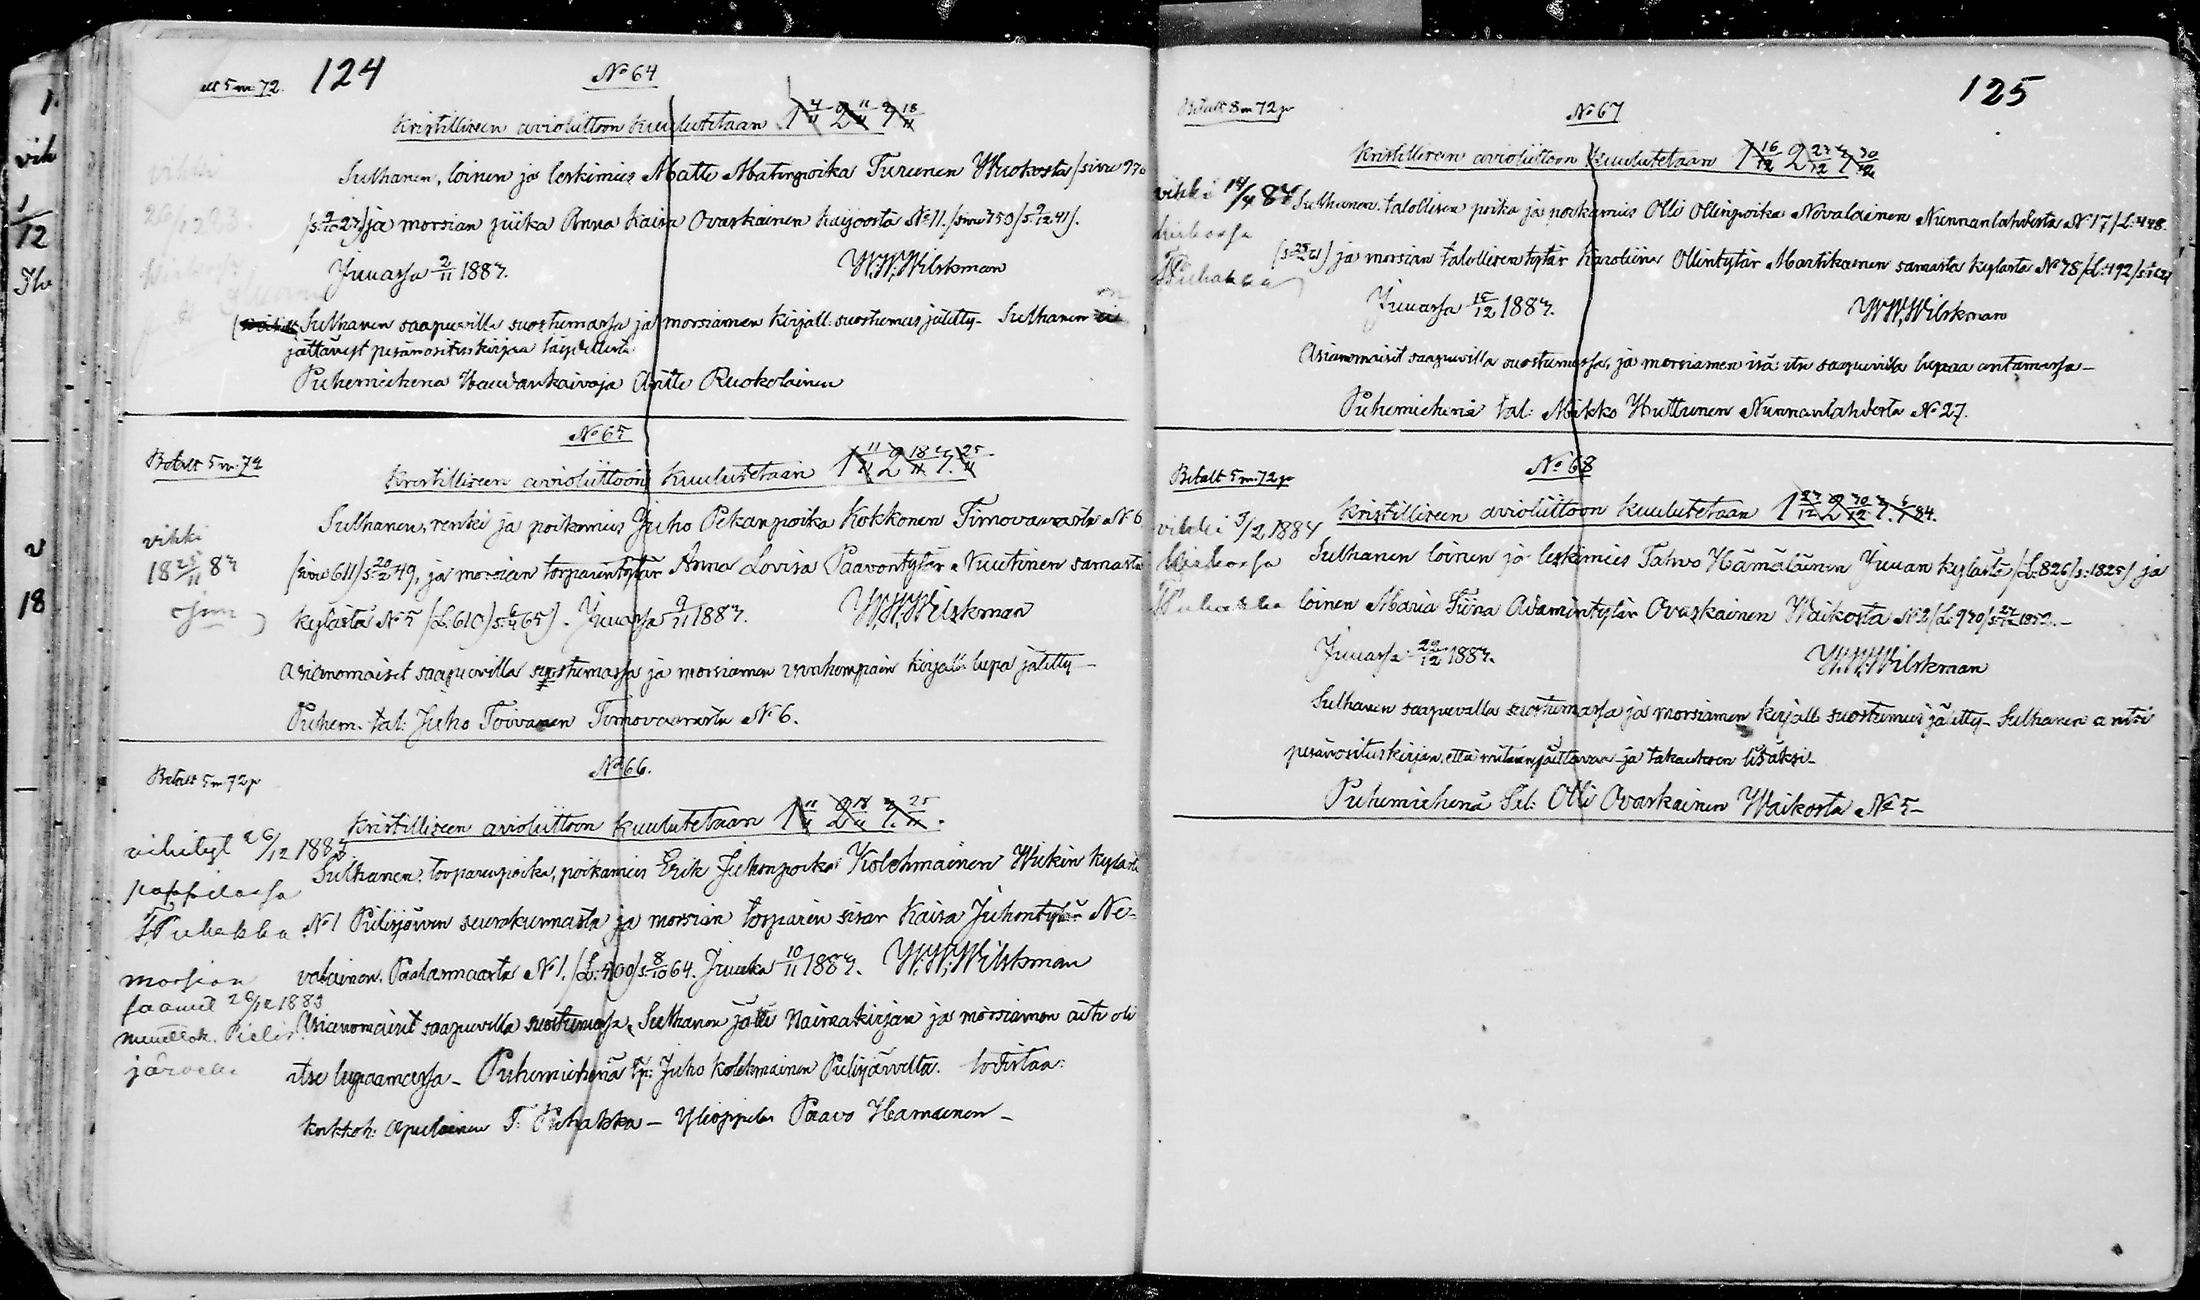 124
Betalt 5 m 72.
No 64
Kristilliseen avioliittoon kuulutetaan 1 4/11 2 11/11 3 18/11
vihki
26/12 83
Sulhanen, loinen ja leskimies Matti Matinpoika Turunen Wuokosta /sivu
ja morsian piika Anna Kaisa Ovaskainen Kaijoosta No 11. /sivu 750/
Juuassa 2/11 1883. W.W.Wilskman
Sulhanen saapuvilla suostumassa ja morsiamen kirjall: suostumus jätetty - Sulhanen on
jättävä perinnösituskirjaa täydellistä
Puhemiehenä Haudankaivaja Antti Ruokolainen
No 65
Betalt 5 m. 72
Kristilliseen avioliittoon kuulutetaan 1 11/11 2 18/11 3 25/11
vihki
18 25/11 83
Sulhanen, renki ja poikamies Juho Pekanpoika Kokkonen Timovaarasta No 6
/sivu 611/ s. 20/2 49, ja morsian torpparintytär Anna Lovisa Paavontytär Nuutinen samasta
kylästä No 5 /L: 610/ s. 65/. Juuassa 9/11 1883. W.W.Wilskman
Asianomaiset saapuvilla suostumassa ja morsiamen vanhempain kirjall. lupa jätetty -
Puhem. tal. Juho Toivanen Timovaarasta No 6.
No 66.
Betalt 5 m 72 p
Kristilliseen avioliittoon kuulutetaan 1 11/11 2 18/11 3 25/11.
vihityt 26/12 1883
pappilassa
T. Puhakka
Sulhanen, torparinpoika, poikamies Erik Juhonpoika Kolehmainen Wiekin kylästä
No 1 Pielisjärven seurakunnasta ja morsian torparin sisar Kaisa Juhontytär Ne-
valainen, Paalasmaasta No 1. /L: 400/ s. 8/10 64. Juuka 10/11 1883. W.W.Wilskman
morsian
saanut 26/12 1883
muuttok. Pielis-
järvelle
Asianomaiset saapuvilla suostumassa. Sulhanen jätti Naimakirjan ja morsiamen äiti oli
itse lupaamassa - Puhemiehenä tp: Juho Kolehmainen Pielisjärveltä. todistaa:
kirkkoh: apulainen T. Puhakka - Ylioppilas Paavo Hämäinen -
125
Betalt 8 m 72 p
No 67
Kristilliseen avioliittoon kuulutetaan 1 16/12 2 23/12 3 30/12
vihki 14/4 84
kirkossa
T Puhakka
Sulhanen, talollisen poika ja poikamies Olli Ollinpoika Nevalainen Nunnanlahdesta No 17 /L: 448.
ja morsian talollisen tytär Karoliina Ollintytär Martikainen samasta kylästä No 78 /L: 492/
Juuassa 15/12 1883. W.W.Wilskman
Asianomaiset saapuvilla suostumassa, ja morsiamen isä itse saapuvilla lupaa antamassa -
Puhemiehenä tal: Mikko Huttunen Nunnanlahdesta No 27.
No 68
Betalt 5 m. 72 p
Kristilliseen avioliittoon kuulutetaan 1 23/12 2 30/12 3 6/1 84.
vihki 3/2 1884
kirkossa
T Puhakka
Sulhanen loinen ja leskimies Tahvo Hämäläinen Juuan kylästä /L: 826/ s: 1825/ ja
loinen Maria Tiina Adamintytär Ovaskainen Waikosta No 2 /L: 970/ s. 1852. -
Juuassa 22/12 1883. W.W.Wilskman
Sulhanen saapuvilla suostumassa ja morsiamen kirjall: suostumus jätetty - Sulhanen antoi
perinnösituskirjan, että mitään jättävän - ja takauksen lisäksi -
Puhemiehenä Tal: Olli Ovaskainen Waikosta No 5 -